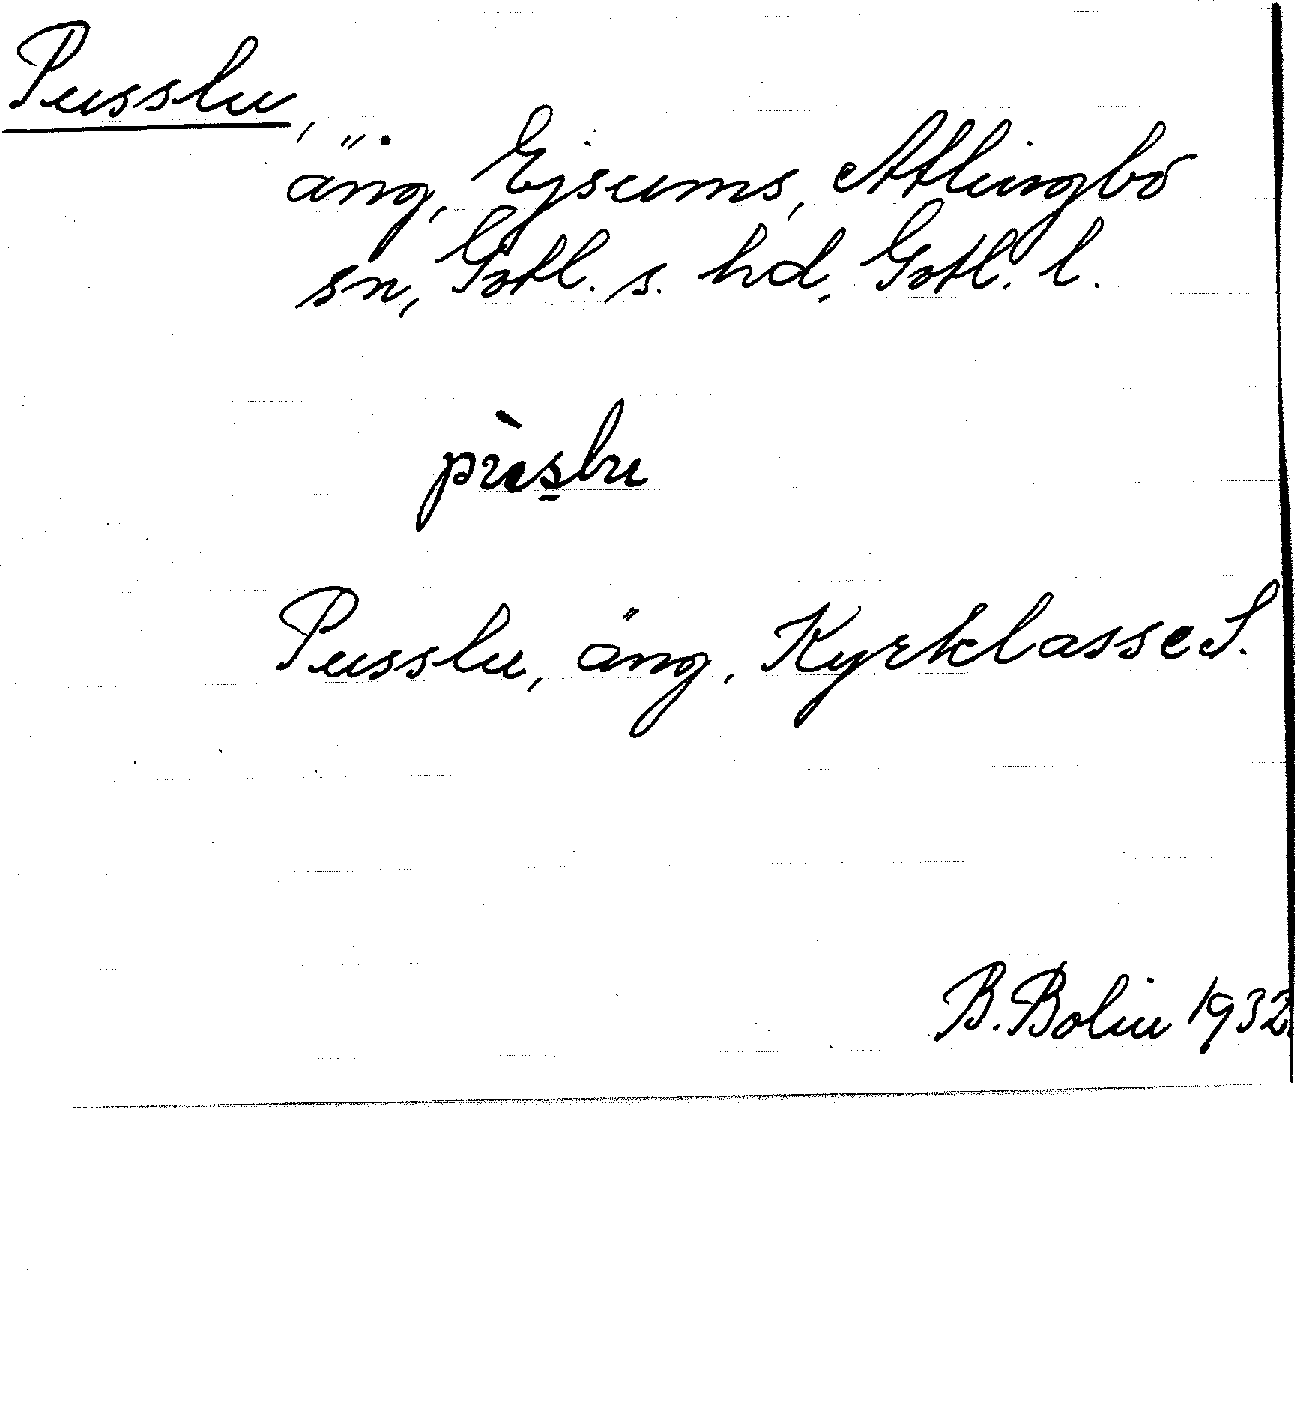 Pusslu,
äng, Ejsums, Atlingbo
sn, Gotl. s. hd, Gotl. l.
pùs̱lu
Pusslu, äng, Kyrklasse S.
B. Bolin 1932